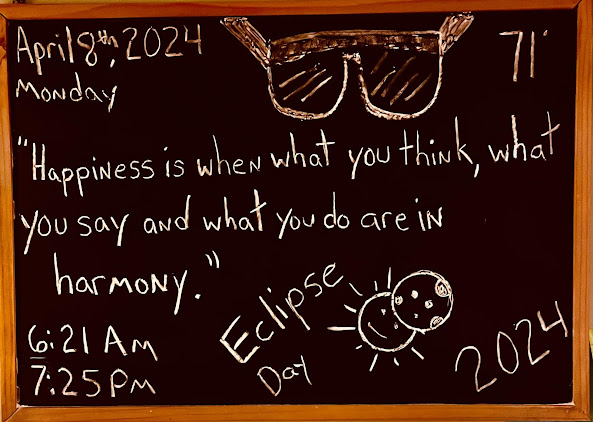 April 8th, 2024
Monday
71°
"Happiness is when what you think, what
you say and what you do are in
harmony."
6:21 AM
7:25 PM
Eclipse
Day
2024